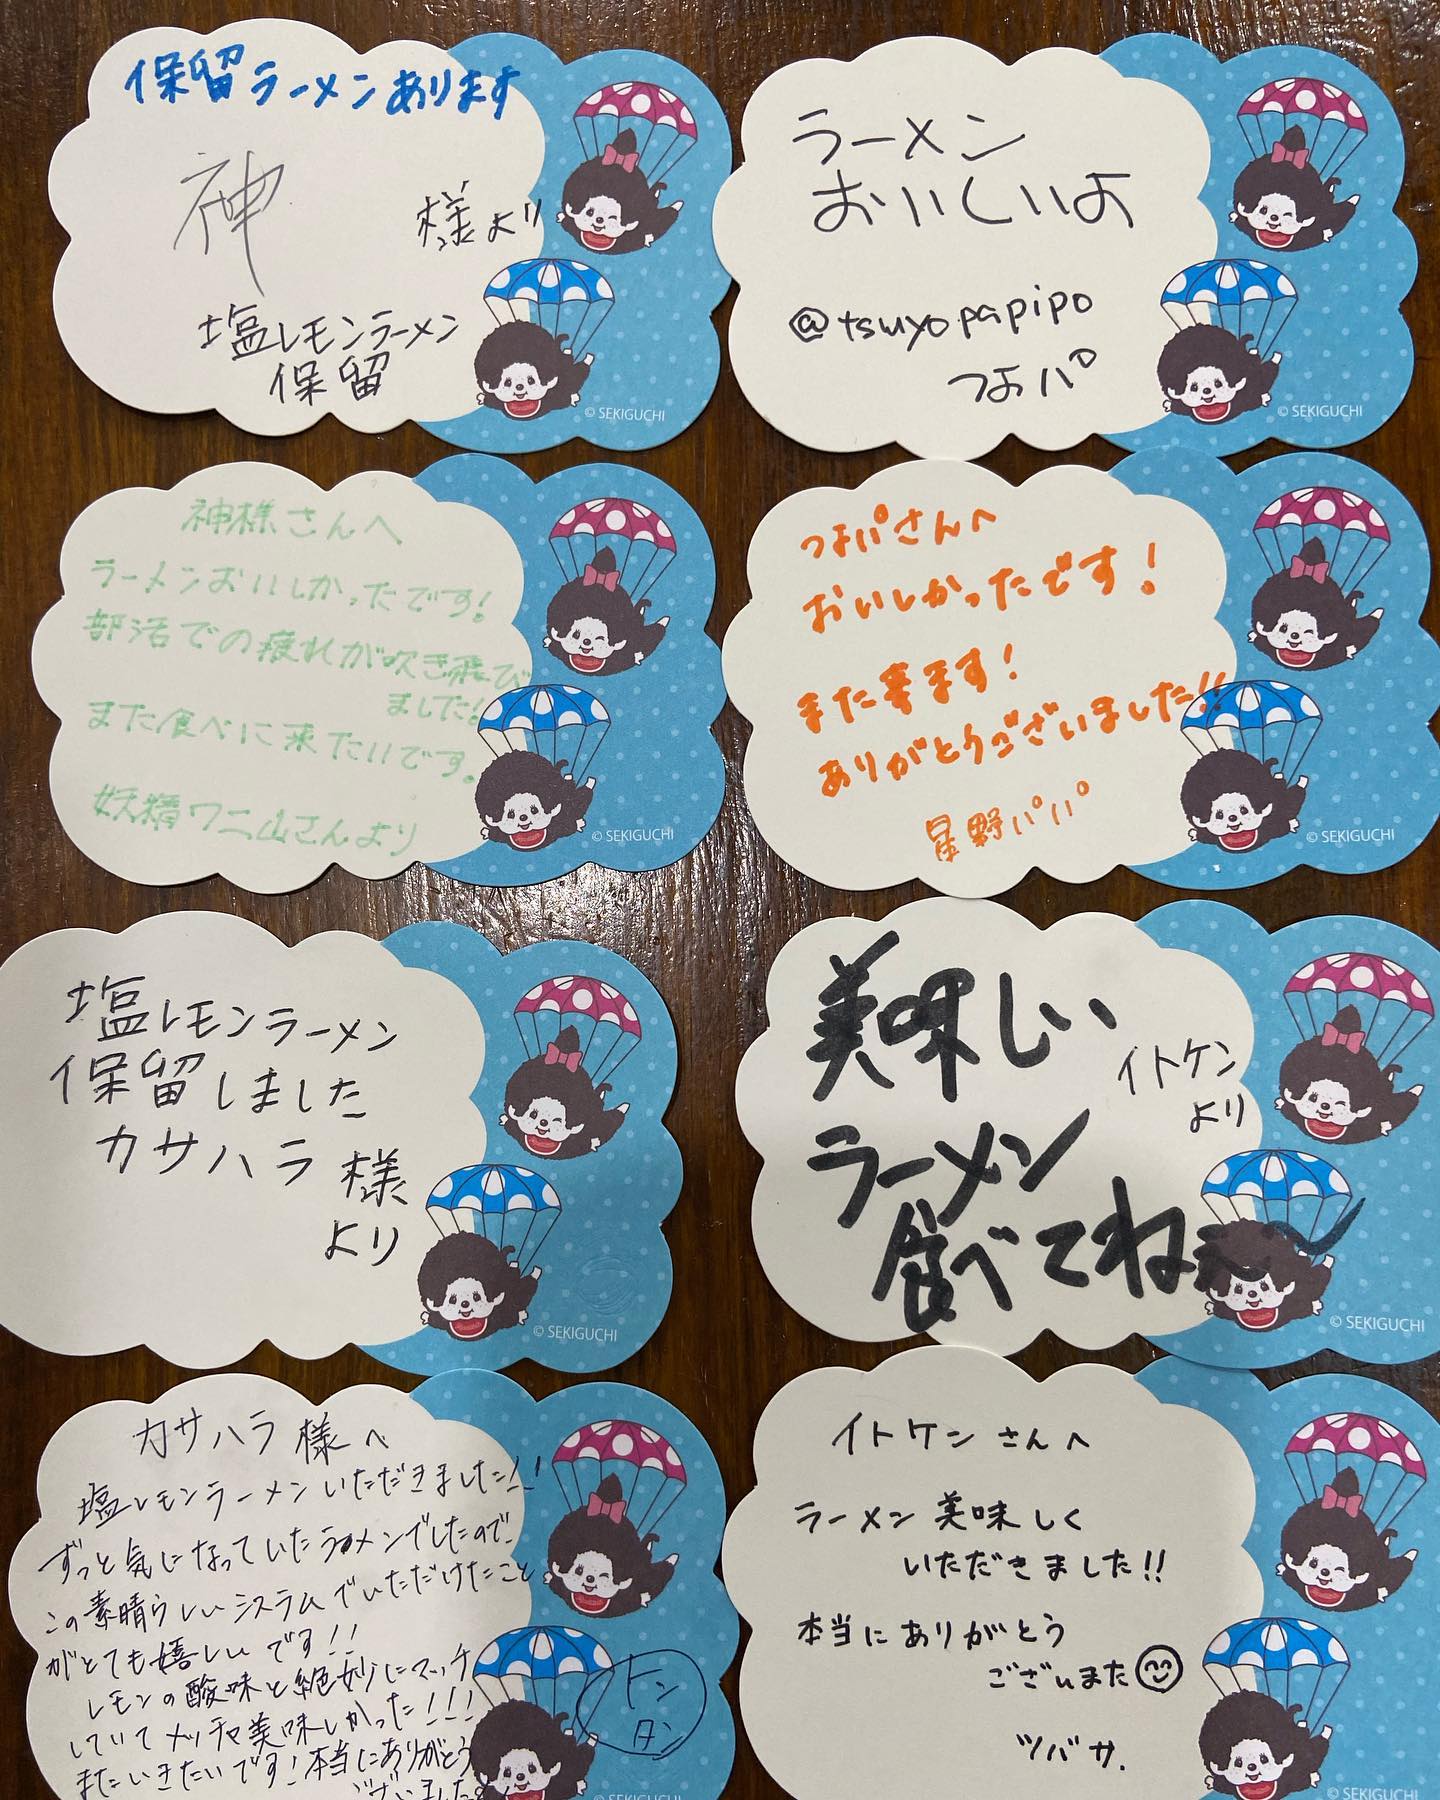 保留ラーメンあります
神
様より
塩レモンラーメン
保留
© SEKIGUCHI
ラーメン
おいしいよ
@tsuyopapipo
つよパ
© SEKIGUCHI
神様さんへ
ラーメンおいしかったです!
部活での疲れが吹き飛び
ました!
また食べに来たいです。
妖精ワニ山さんより
© SEKIGUCHI
つよパさんへ
おいしかったです!
また来ます!
ありがとうございました!!
星野パパ
© SEKIGUCHI
塩レモンラーメン
保留しました
カサハラ様
より
© SEKIGUCHI
美味しい
イトケン
より
ラーメン
食べてねぇ〜
© SEKIGUCHI
カサハラ様へ
塩レモンラーメンいただきました!!
ずっと気になっていたラーメンでしたので、
この素晴らしいシステムでいただけたこと
がとても嬉しいです!!
レモンの酸味と絶妙にマッチ
していてメッチャ美味しかった!!!
またいきたいです!本当にありがとう
ございました
トン
タン
© SEKIGUCHI
イトケンさんへ
ラーメン美味しく
いただきました!!
本当にありがとう
ございまた
ツバサ.
© SEKIGUCHI